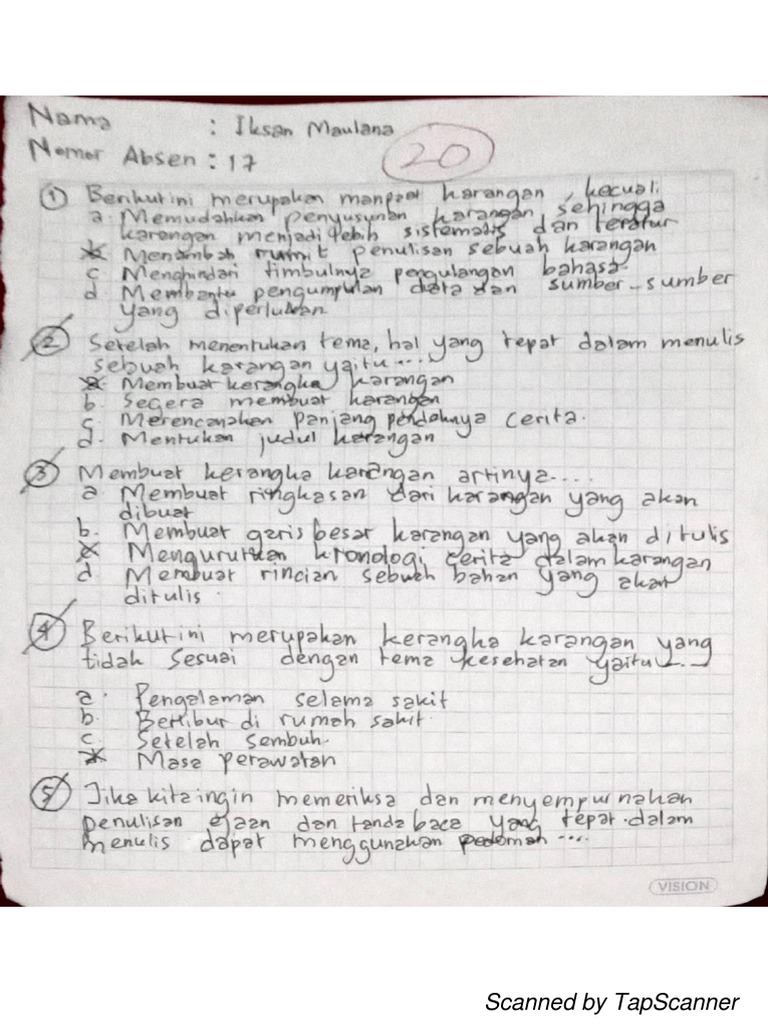 Nama : Iksan Maulana
Nomor Absen : 17
20
1 Berikut ini merupakan manpaat karangan, kecuali
a. Memudahkan penyusunan karangan sehingga
karangan menjadi lebih sistematis dan teratur
b. Menambah rumit penulisan sebuah karangan
c. Menghindari timbulnya pengulangan bahasa
d. Membantu pengumpulan data dan sumber-sumber
yang diperlukan
2 Setelah menentukan tema, hal yang tepat dalam menulis
sebuah karangan yaitu....
a. Membuat kerangka karangan
b. Segera membuat karangan
c. Merencanakan panjang pendeknya cerita.
d. Mentukan judul karangan
3 Membuat kerangka karangan artinya....
a. Membuat ringkasan dari karangan yang akan
dibuat
b. Membuat garis besar karangan yang akan ditulis
c. Mengurutkan kronologi cerita dalam karangan
d. Membuat rincian sebuah bahan yang akan
ditulis.
4 Berikut ini merupakan kerangka karangan yang
tidak sesuai dengan tema kesehatan yaitu....
a. Pengalaman selama sakit
b. Berlibur di rumah sakit.
c. Setelah sembuh.
d. Masa perawatan
5 Jika kita ingin memeriksa dan menyempurnakan
penulisan ejaan dan tanda baca yang tepat dalam
menulis dapat menggunakan pedoman ....
VISION
Scanned by TapScanner